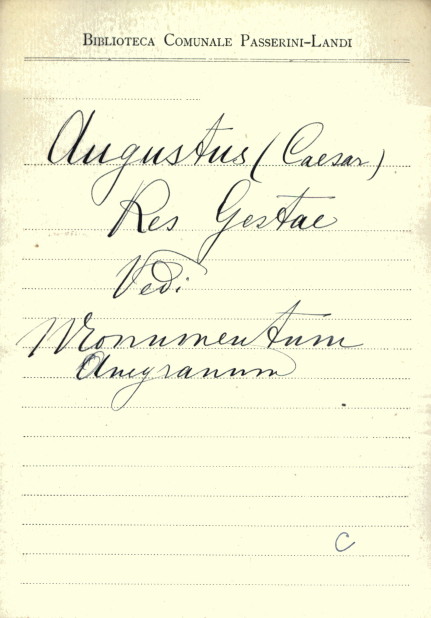 BIBLIOTECA COMUNALE PASSERINI-LANDI
Augustus (Caesar)
Res Gestae
Vedi
Monumentum
Ancyranum
C